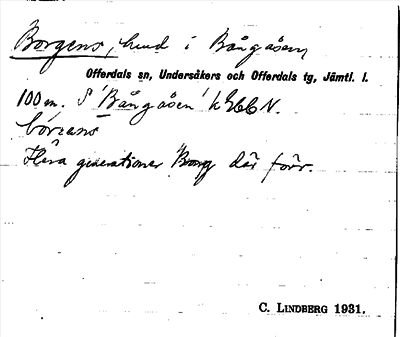 Borgens, hmd i Bångåsen
Offerdals sn, Undersåkers och Offerdals tg, Jämtl. l.
100 m. S 'Bångåsen' k
bórzens
Flera generationer Borg där förr.
C. LINDBERG 1931.